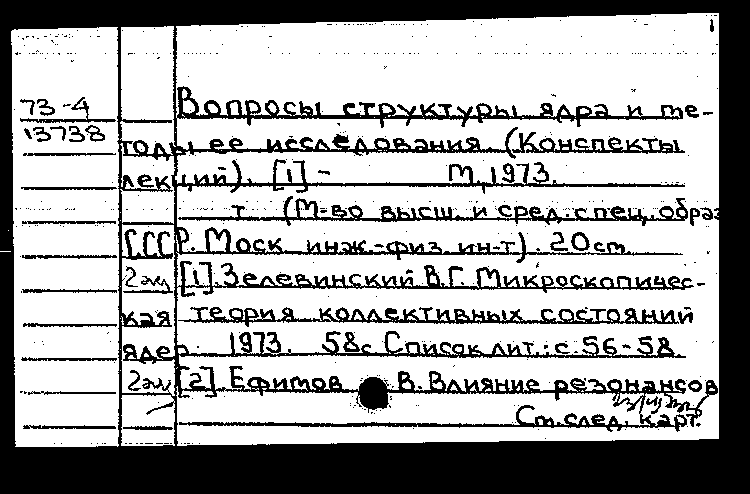 73-4 Вопросы структуры ядра и ме-
13738 тоды ее исследования (Конспекты
лекций). [1] - М, 1973.
т (М-во высш. и сред. спец. образ
СССР. Моск инж.-физ. ин-т). 20 см.
2 экз [1]. Зелевинский В.Г. Микроскопичес-
кая теория коллективных состояний
ядер. 1973. 58с Список лит.: с. 56-58.
2 экз [2]. Ефимов В. Влияние резонансов
См. след. карт.